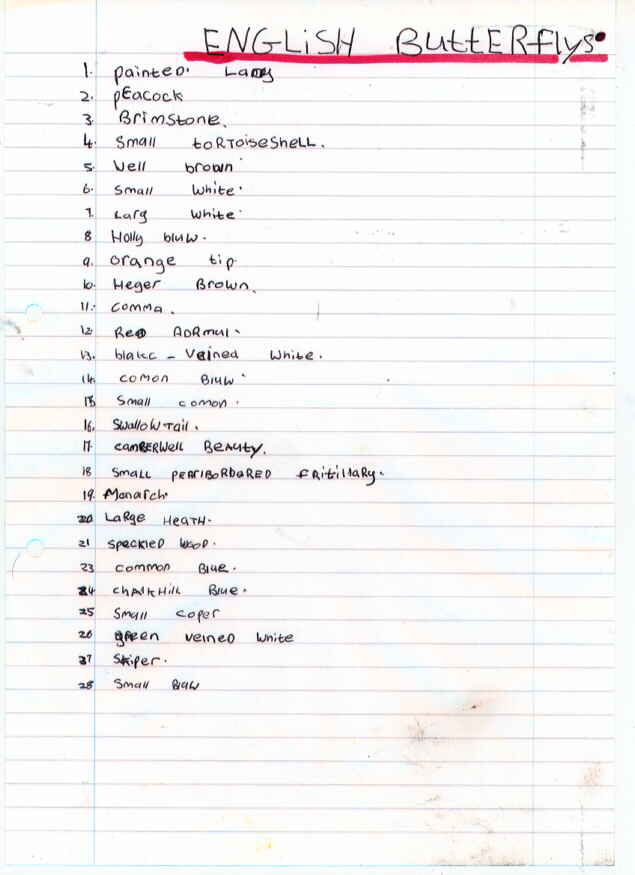 ENGLiSH ButtERflys
1. painted. Lady
2. pEacock
3. Brimstone.
4. Small toRToiseShell.
5. Well brown
6. Small White.
7. Larg White.
8 Holly bluw.
9. orange tip.
10. Heger Brown.
11. comma.
12 Red ADRmul.
13. blakc - Veined White.
14. comon Bluw
15 Small comon.
16. SwallowTail.
17 camBERWell BEAUTY.
18 Small PERlBORDERED FRitillary.
19. Monarch.
20 LaRge HEATH.
21 SPECKlED WOOD.
23 common Blue.
24 chalkHill Blue.
25 Small coper
26 green veined White
27 Skiper.
28 Small Bluw